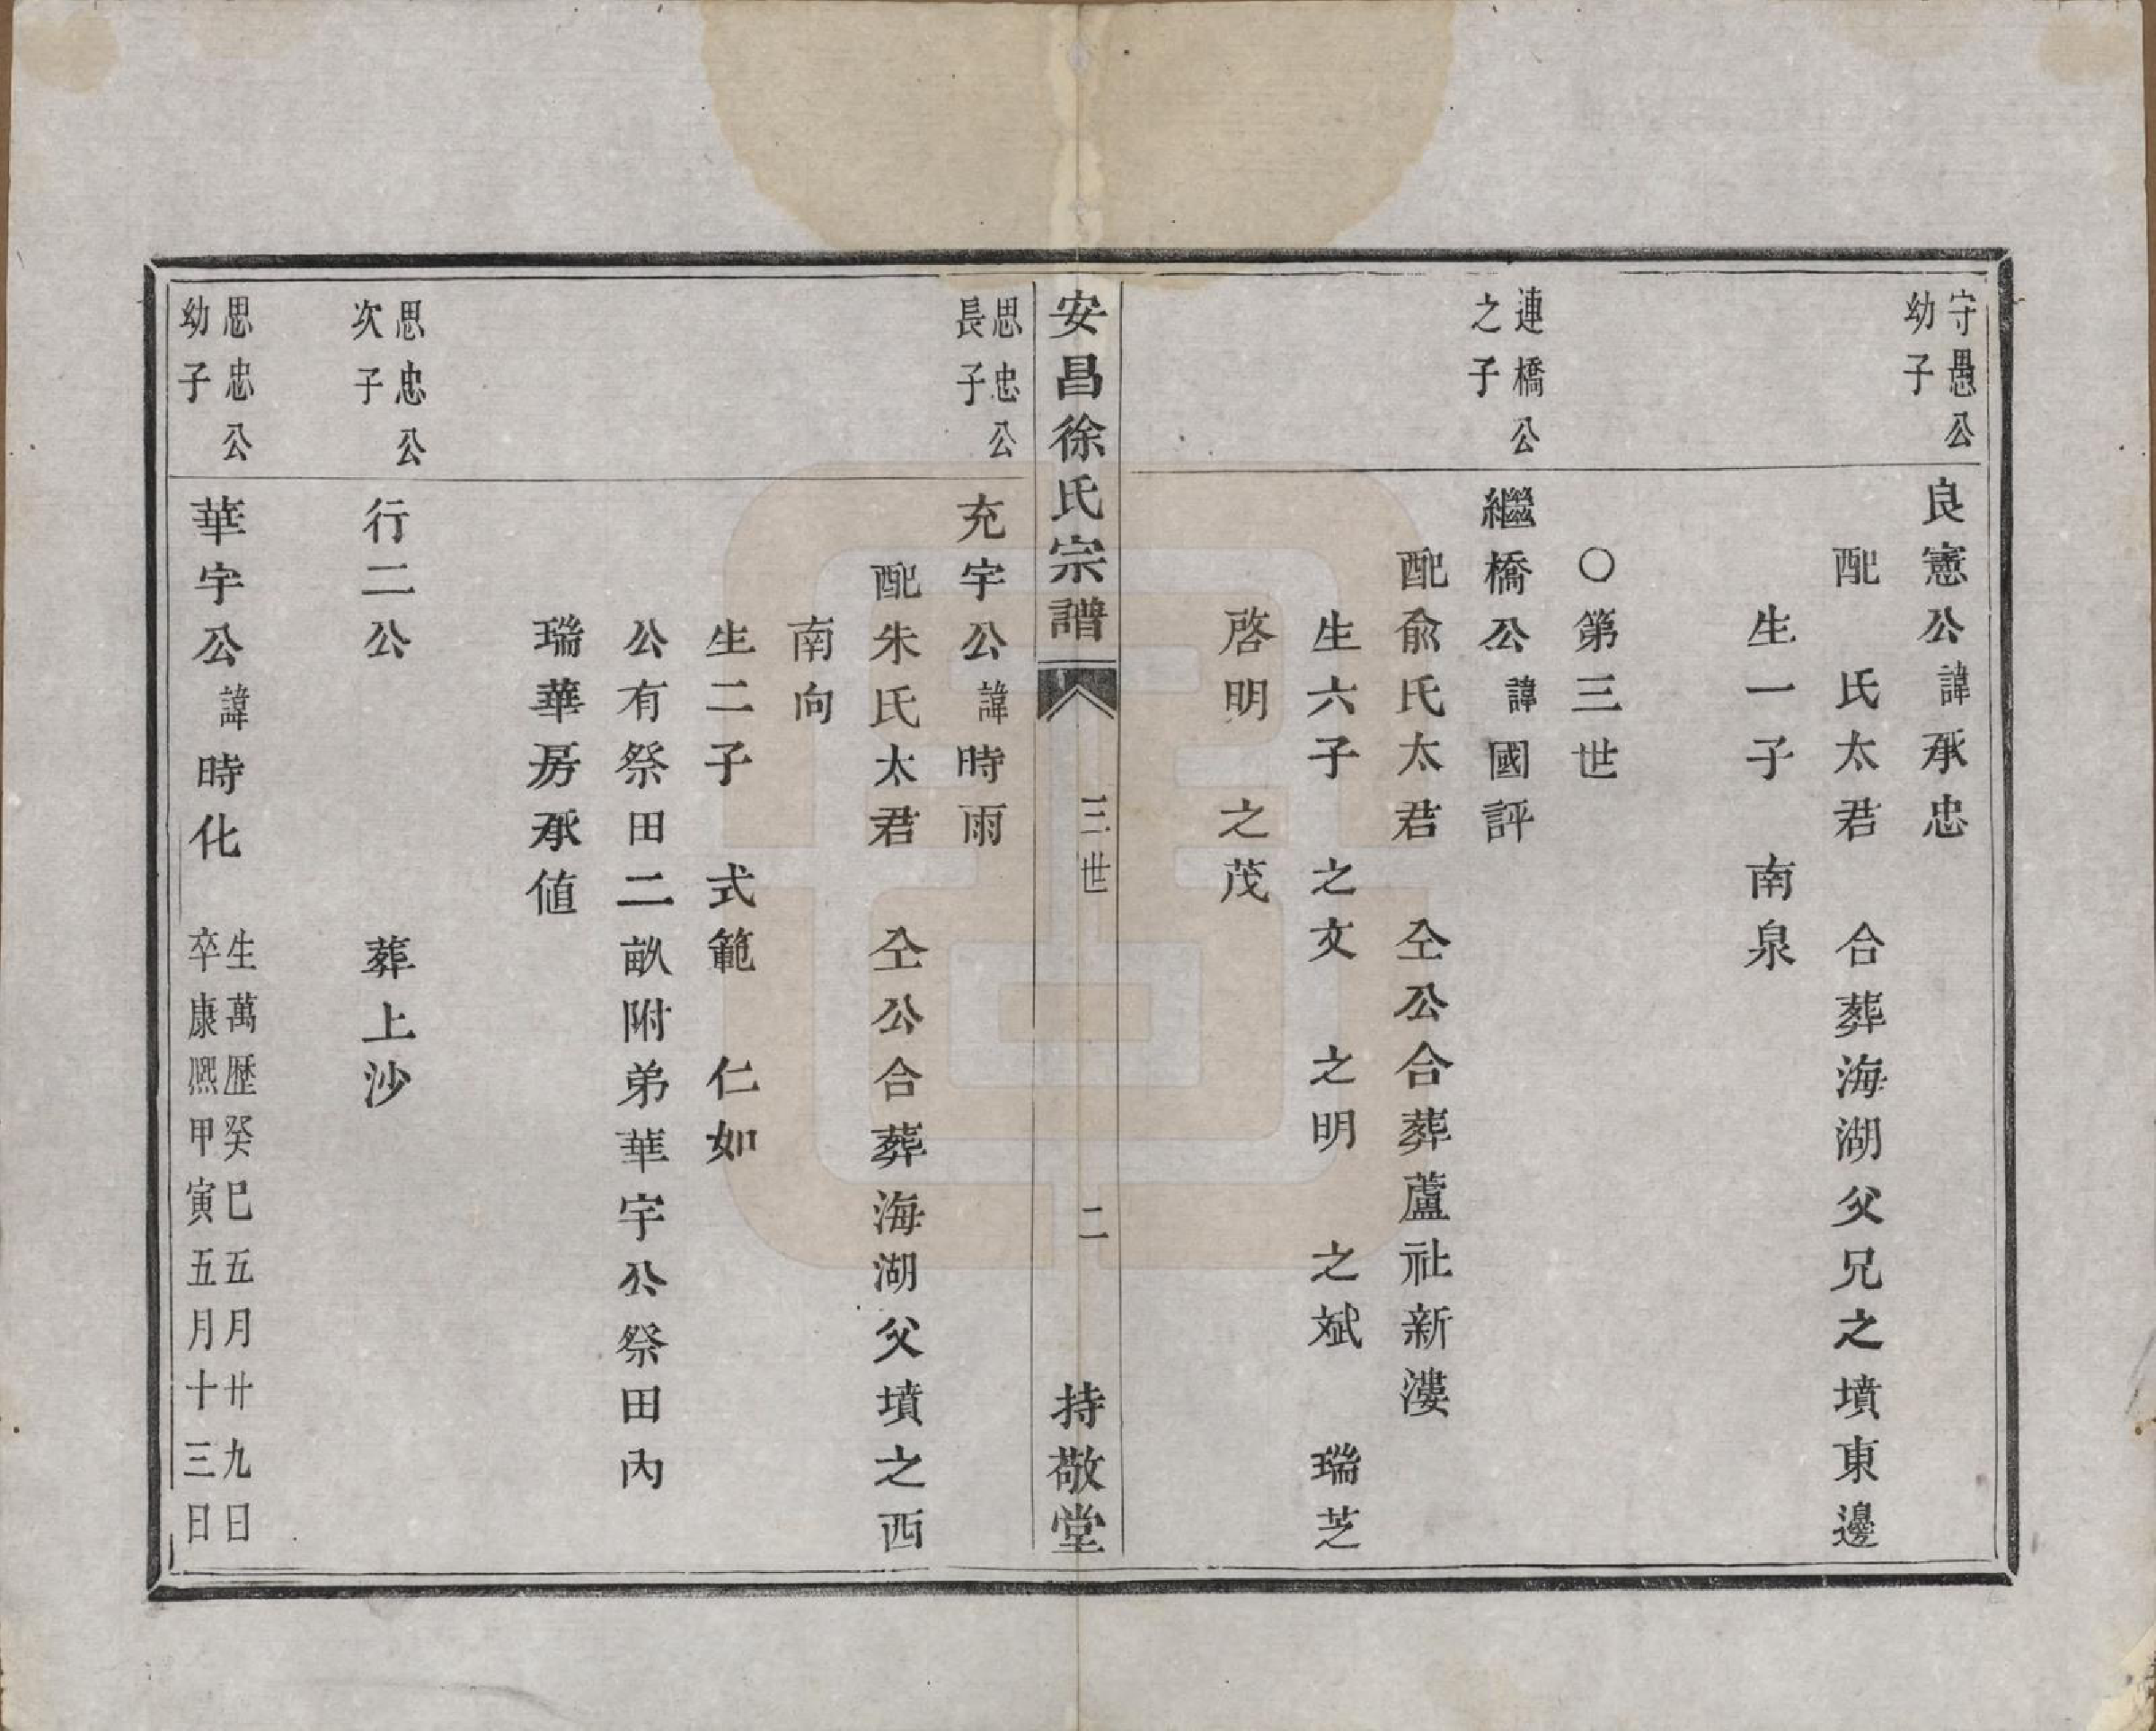 守愚公
幼子
良憲公諱承忠
配　氏太君　合葬海湖父兄之墳東邊
生一子　南泉
○第三世
連橋公
之子
繼橋公諱國評
配俞氏太君　仝公合葬蘆社新漊
生六子　之文　之明　之斌　瑞芝
啓明　之茂
安昌徐氏宗譜　三世　二　持敬堂
思忠公
長子
充宇公諱時雨
配朱氏太君　仝公合葬海湖父墳之西
南向
生二子　式範　仁如
公有祭田二畝附弟華宇公祭田內
瑞華房承值
思忠公
次子
行二公　葬上沙
思忠公
幼子
華宇公諱時化
生萬歷癸巳五月廿九日
卒康熙甲寅五月十三日